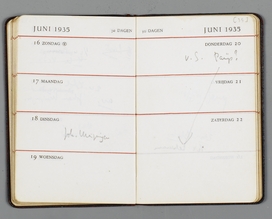 JUNI 1935
30 DAGEN
16 ZONDAG
17 MAANDAG
18 DINSDAG
19 WOENSDAG
30 DAGEN
JUNI 1935
DONDERDAG 20
v. S.
VRIJDAG 21
ZATERDAG 22